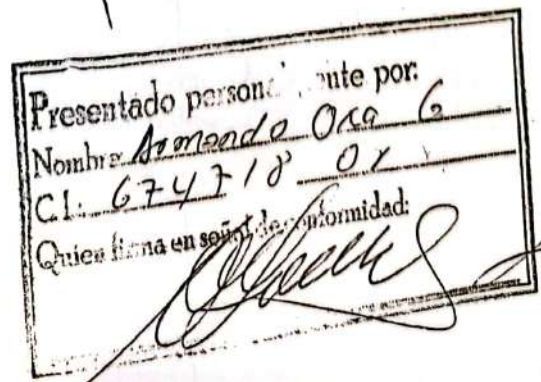 Presentado personalmente por:
Nombre Armando Oca G
C.I. 674718 Or
Quien firma en señal de conformidad: